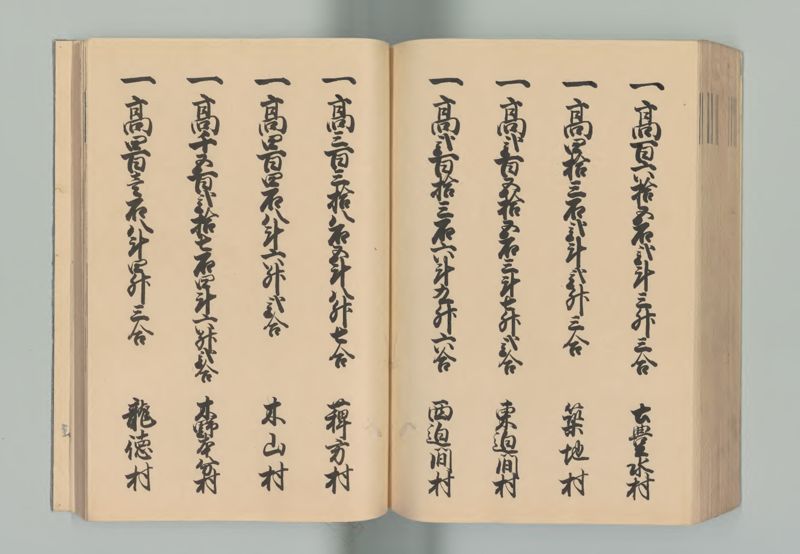 一高百六拾五石弐斗三升三合 古豊水村
一高四拾三石弐斗弐升三合 築地村
一高弐百五拾五石三斗七升弐合 東迫間村
一高弐百拾三石六斗九升六合 西迫間村
一高三百三拾八石五斗八升七合 薭方村
一高四百四石八斗六升弐合 木山村
一高千五百弐拾七石四斗一升弐合 木野村
一高四百壱石八斗四升三合 龍徳村